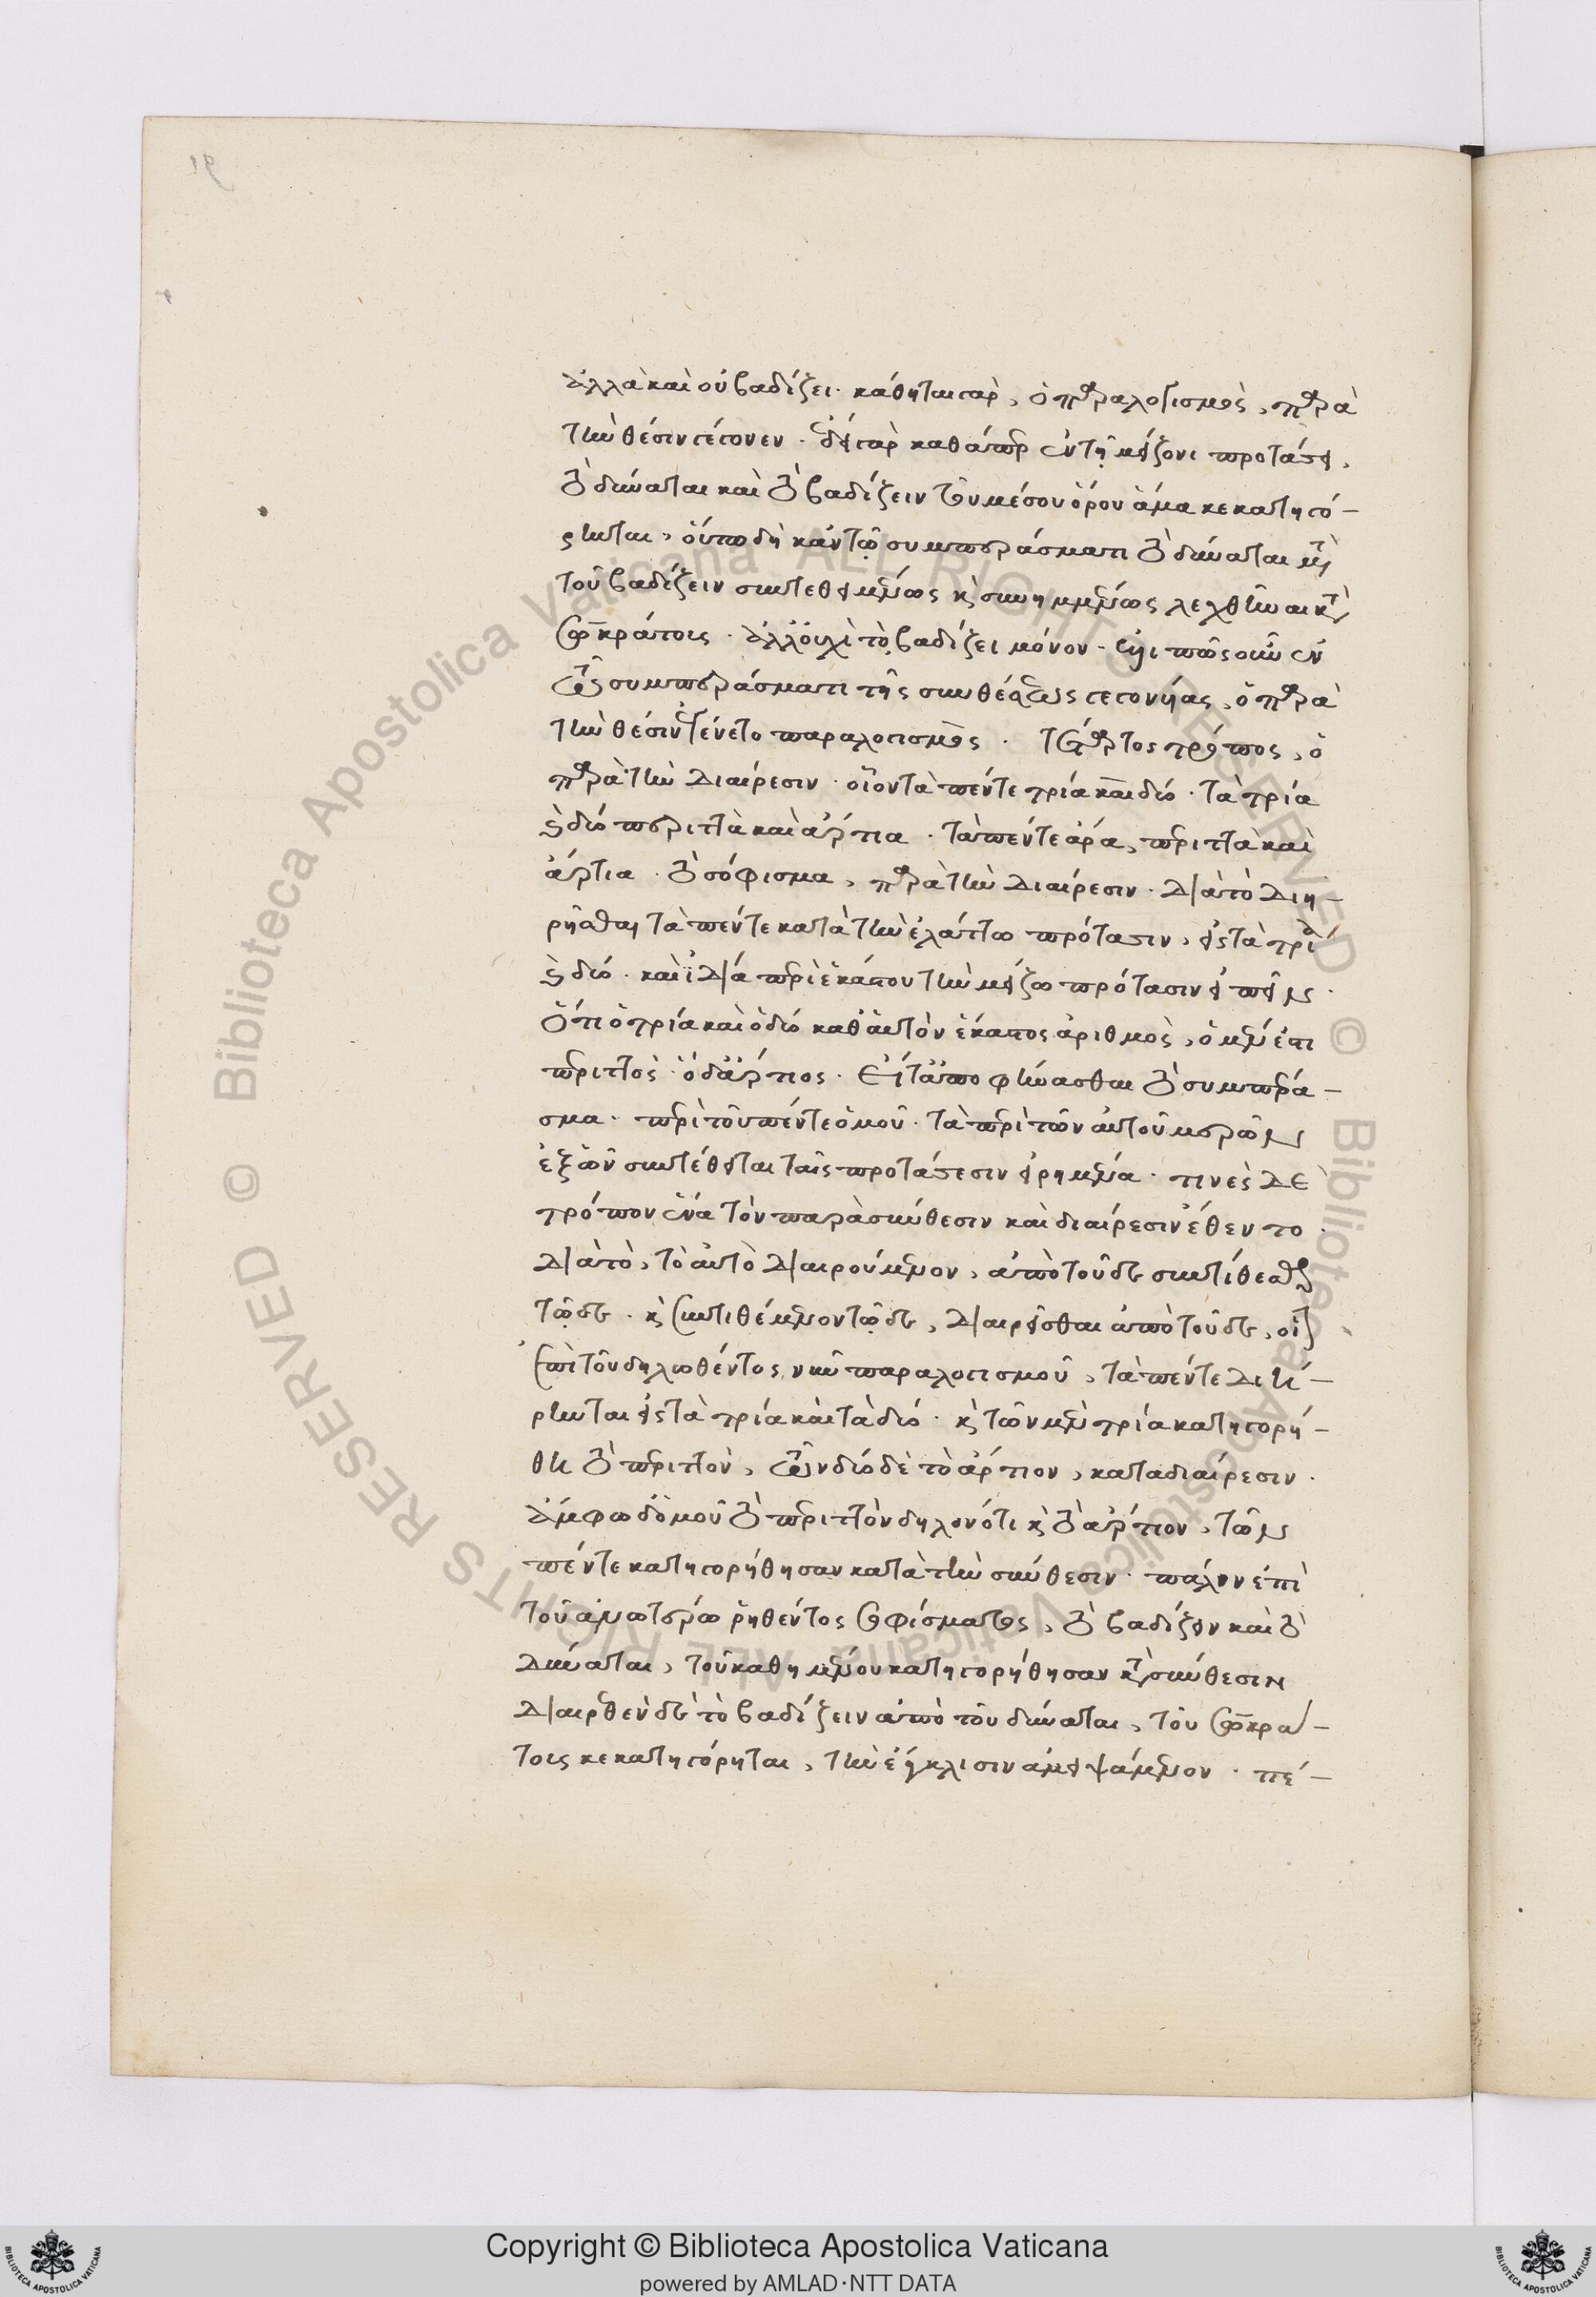 ἀλλὰ καὶ οὐ βαδίζει· κάθηται γάρ, ὁ παραλογισμὸς, παρὰ
τὴν θέσιν γέγονεν· ἔδει γὰρ καθάπερ ἐν τῇ μείζονι προτάσει,
τὸ δύναται καὶ τὸ βαδίζειν τοῦ μέσου ὅρου ἅμα κεκατηγό-
ρηται, οὕτω δὴ κἀν τῷ συμπεράσματι τὸ δύναται μετὰ
τοῦ βαδίζειν συντεθειμένως καὶ συνημμένως λεχθῆναι κατὰ
Σωκράτους· ἀλλ' οὐχὶ τὸ βαδίζει μόνον· πῶς οὖν ἐν
τῷ συμπεράσματι τῆς συνθέσεως γεγονυίας, ὁ παρὰ
τὴν θέσιν ἐγένετο παραλογισμός· τέταρτος τρόπος, ὁ
παρὰ τὴν διαίρεσιν· οἷον τὰ πέντε τρία καὶ δύο· τὰ τρία
καὶ δύο περιττὰ καὶ ἄρτια· τὰ πέντε ἄρα, περιττὰ καὶ
ἄρτια· τὸ σόφισμα, παρὰ τὴν διαίρεσιν· διὰ τὸ διη-
ρῆσθαι τὰ πέντε κατὰ τὴν ἐλάττω πρότασιν, εἰς τὰ τρία
καὶ δύο· καὶ ἰδίᾳ περὶ ἑκάστου τὴν μείζω πρότασιν εἰπεῖν·
ὅτι ὁ τρία καὶ ὁ δύο καθ' αὑτὸν ἕκαστος ἀριθμὸς, ὁ μὲν ἐστι
περιττὸς· ὁ δ' ἄρτιος· εἶτ' ἀποφήνασθαι τὸ συμπέρα-
σμα· περὶ τοῦ πέντε ὁμοῦ· τὰ περὶ τῶν αὐτοῦ μερῶν
ἐξ ὧν συντέθειται ταῖς προτάσεσιν εἰρημένα· τινὲς δὲ
τρόπον ἕνα τὸν παρὰ σύνθεσιν καὶ διαίρεσιν ἔθεντο·
διὰ τὸ, τὸ αὐτὸ διαιρούμενον, ἀπὸ τοῦδε συντίθεσθαι
τῷδε· καὶ συντιθέμενον τῷδε, διαιρεῖσθαι ἀπὸ τοῦδε, οἷον
ἐπὶ τοῦ δηλωθέντος νῦν παραλογισμοῦ, τὰ πέντε διῄ-
ρηται εἰς τὰ τρία καὶ τὰ δύο· καὶ τῶν μὲν τρία κατηγορή-
θη τὸ περιττὸν, τῶν δύο δὲ τὸ ἄρτιον, κατὰ διαίρεσιν·
ἄμφω δ' ὁμοῦ τὸ περιττὸν δηλονότι καὶ τὸ ἄρτιον, τῶν
πέντε κατηγορήθησαν κατὰ τὴν σύνθεσιν· πάλιν ἐπὶ
τοῦ ἀνωτέρω ῥηθέντος σοφίσματος, τὸ βαδίζειν καὶ τὸ
δύναται, τοῦ καθημένου κατηγορήθησαν κατὰ σύνθεσιν
διαιρεθὲν δὲ τὸ βαδίζειν ἀπὸ τοῦ δύναται, τοῦ Σωκρά-
τους κεκατηγόρηται, τὴν ἔγκλισιν ἀμειψάμενον· πέ-